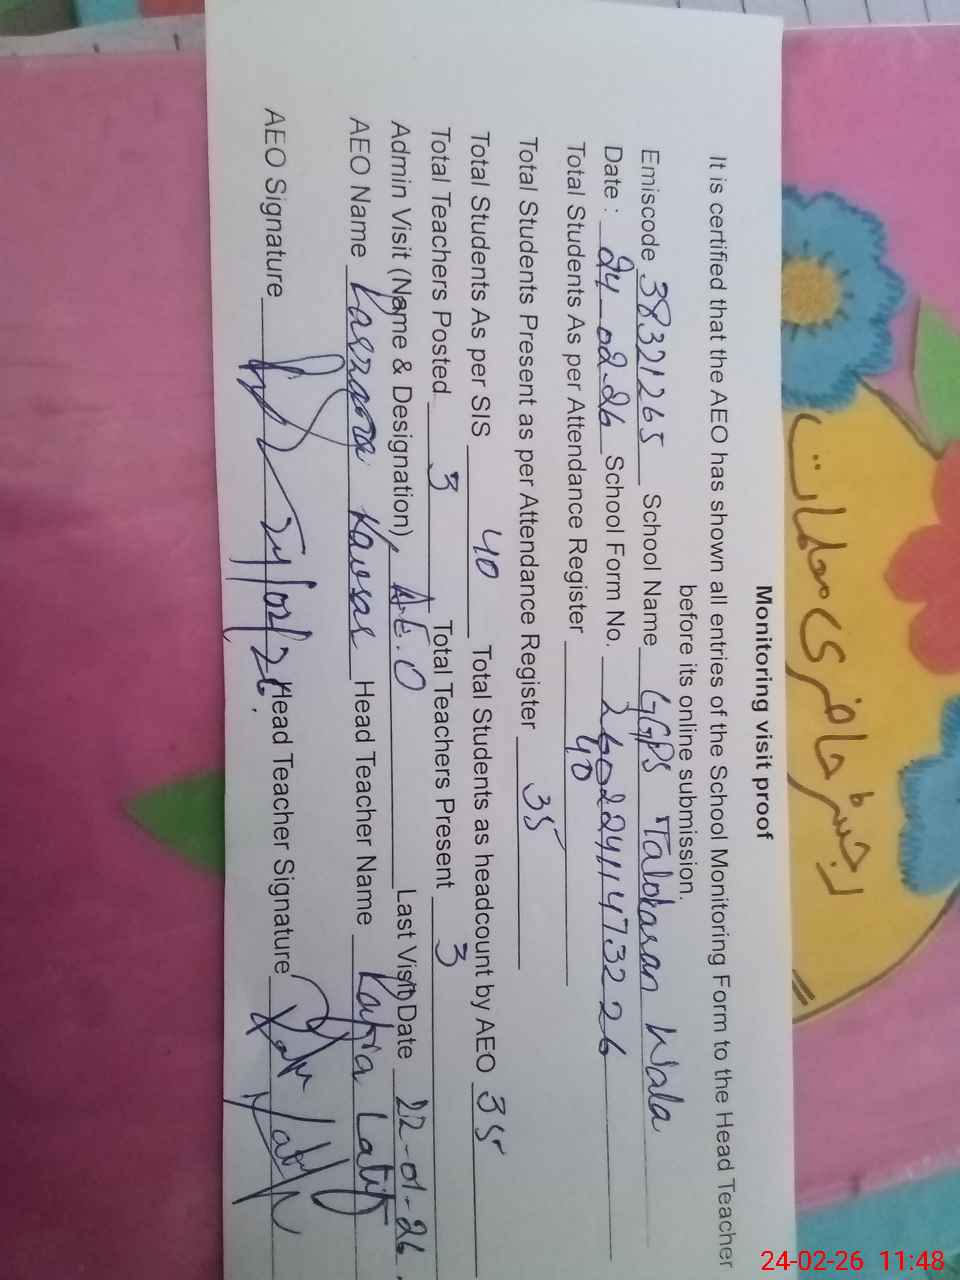 Monitoring visit proof
It is certified that the AEO has shown all entries of the School Monitoring Form to the Head Teacher
before its online submission.
Emiscode 38321265 School Name GGPS Talokaran Wala
Date : 24-02-26 School Form No. 26022411473226
Total Students As per Attendance Register 40
Total Students Present as per Attendance Register 35
Total Students As per SIS 40 Total Students as headcount by AEO 35
Total Teachers Posted 3 Total Teachers Present 3
Admin Visit (Name & Designation) A.E.O Last Visit Date 22-01-26.
AEO Name Farzana Kausar Head Teacher Name Latif
AEO Signature 24/02/26. Head Teacher Signature
رجسٹر حاضری معلمات
24-02-26 11:48